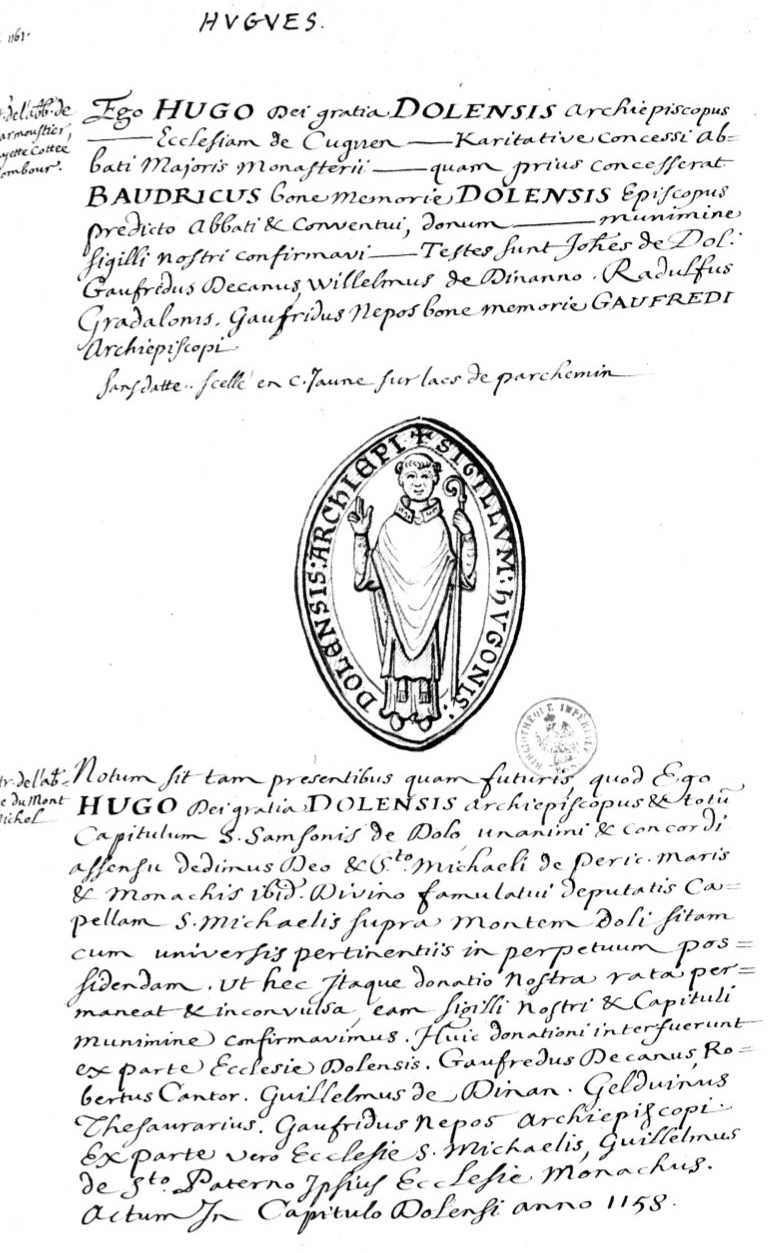 HVGVES.
1161.
del'abb. de
armoustier,
ayette Cottée
ombour.
Ego HUGO Dei gratia DOLENSIS Archiepiscopus
—— Ecclesiam de Cuguen —— Karitative concessi Ab=
bati Majoris Monasterii —— quam prius concesserat
BAUDRICUS bone memorie DOLENSIS Episcopus
predicto Abbati & Conventui, donum —— munimine
sigilli nostri confirmavi —— Testes sunt Johes de Dol.
Gaufridus Decanus, Willelmus de Dinanno. Radulfus
Gradalonis. Gaufridus Nepos bone memorie GAUFREDI
Archiepiscopi
sans datte.. scellé en c. Jaune sur lacs de parchemin
✠ SIGILLVM: hVGONIS: DOLENSIS: ARChIEPI
BIBLIOTHÈQUE IMPÉRIALE
tr. de l'ab.
e du Mont
Michel
Notum sit tam presentibus quam futuris, quod Ego
HUGO Dei gratia DOLENSIS archiepiscopus & totū
Capitulum S. Samsonis de Dolo unanimi & concordi
assensu dedimus Deo & S.to Michaeli de Peric. Maris
& Monachis ibid. Divino famulatui deputatis Ca=
pellam S. Michaelis supra Montem Doli sitam
cum universis pertinentiis in perpetuum pos=
sidendam. Ut hec Itaque donatio Nostra rata per=
maneat & inconvulsa, eam sigilli Nostri & Capituli
munimine confirmavimus. Huic donationi interfuerunt
ex parte Ecclesie Dolensis. Gaufredus Decanus, Ro=
bertus Cantor. Guillelmus de Dinan. Gelduinus
Thesaurarius. Gaufridus Nepos Archiepiscopi.
Ex parte vero Ecclesie S. Michaelis, Guillelmus
de S.to Paterno Ipsius Ecclesie Monachus.
Actum In Capitulo Dolensi anno 1158.